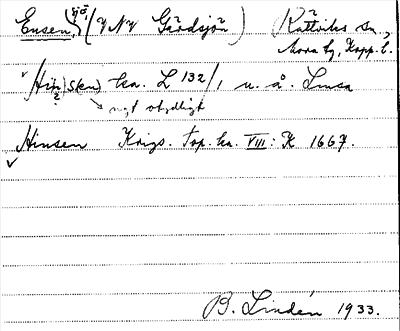 Ensen, sjö, (V NV Gärdsjön) Rättviks sn.,
Mora tg, Kopp. l.
Hin(?)sken ka. L 132/1 u. å. Lmsa
ngt otydligt
Hinsen Krigs. Top. ka. VIII: K 1667.
B. Lindén 1933.